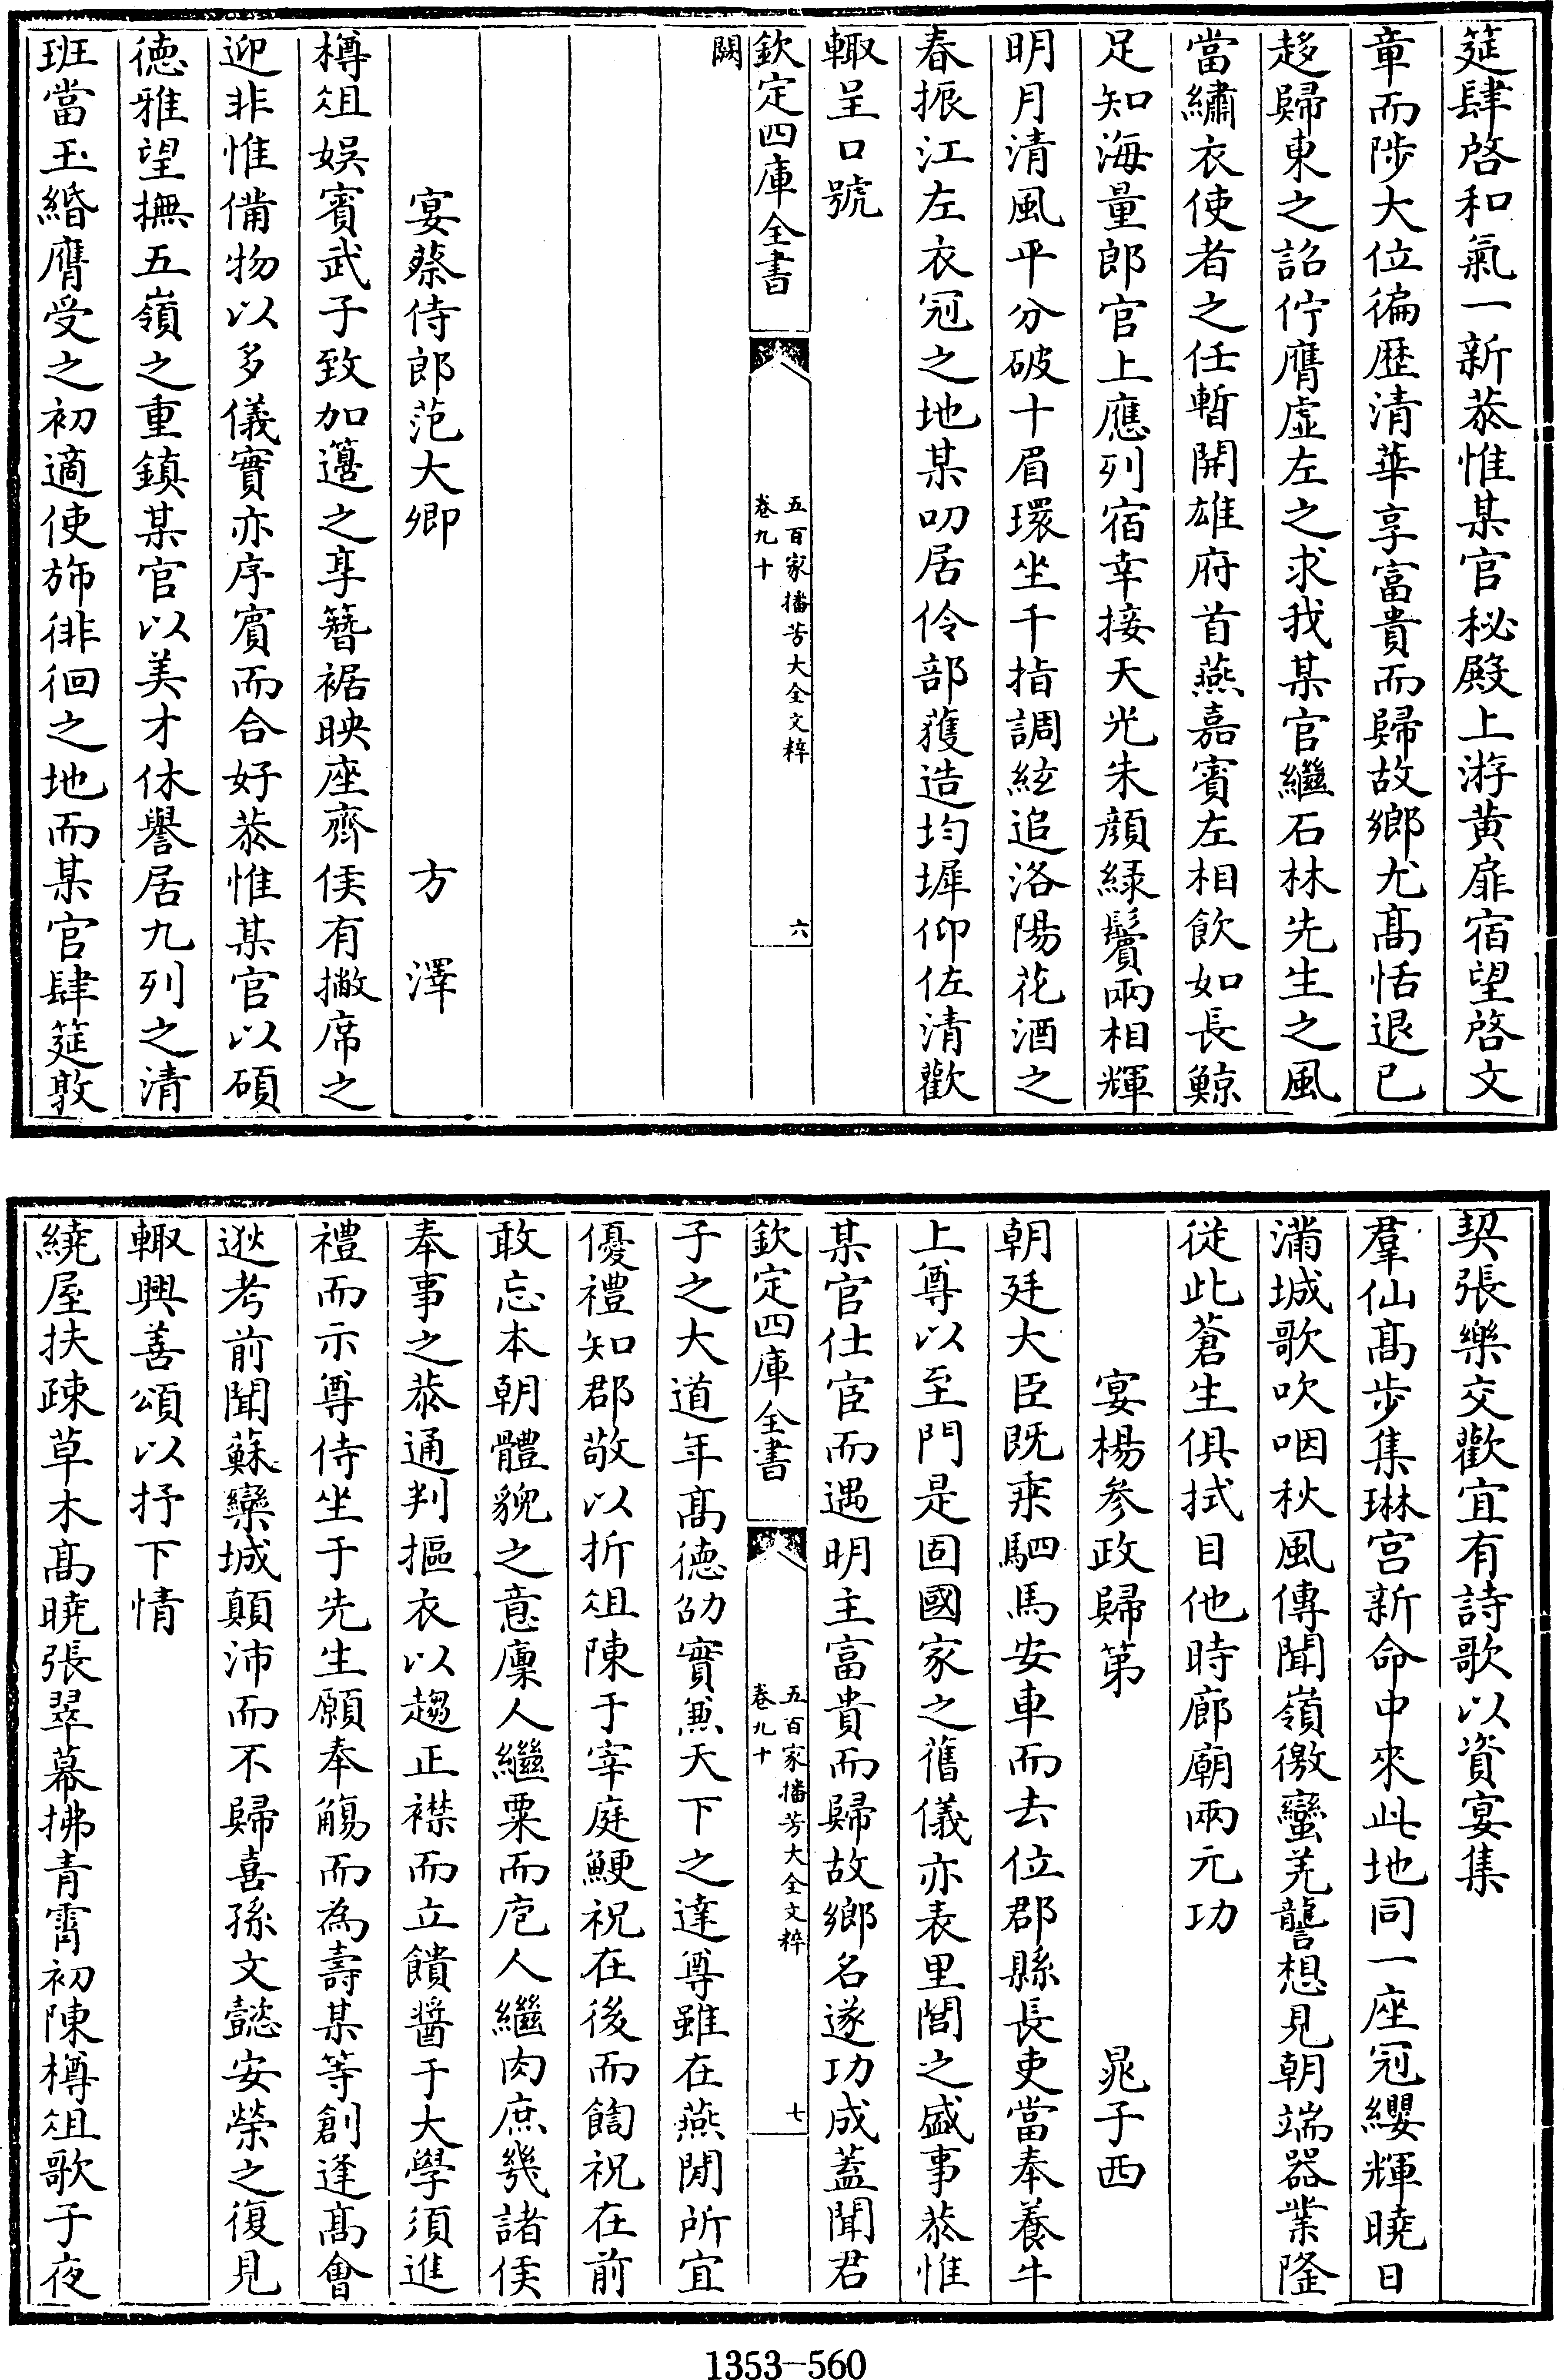 筵肆啓和氣一新恭惟某官秘殿上㳺黄扉宿望啓文
章而陟大位徧歴清華享富貴而歸故鄉尤髙恬退已
趍歸東之詔佇膺虚左之求我某官繼石林先生之風
當繡衣使者之任暫開雄府首燕嘉賓左相飲如長鯨
足知海量郎官上應列宿幸接天光朱顔緑鬢兩相輝
明月清風平分破十眉環坐千指調絃追洛陽花酒之
春振江左衣冠之地某叨居伶部獲造均墀仰佐清歡
輙呈口號
欽定四庫全書
五百家播芳大全文粹
卷九十
六
闕
宴蔡侍郎范大卿
方澤
樽俎娯賓武子致加籩之享簪裾映座齊侯有撇席之
迎非惟備物以多儀實亦序賔而合好恭惟某官以碩
徳雅望撫五嶺之重鎮某官以美才休譽居九列之清
班當玉緡膺受之初適使斾徘徊之地而某官肆筵敦
契張樂交歡宜有詩歌以資宴集
羣仙髙步集琳宫新命中來此地同一座冠纓輝曉日
滿城歌吹咽秋風傳聞嶺徼蠻羌讋想見朝端器業隆
從此蒼生俱拭目他時廊廟兩元功
宴楊參政歸第
晁子西
朝廷大臣既乘駟馬安車而去位郡縣長吏當奉養牛
上尊以至門是固國家之舊儀亦表里閭之盛事恭惟
某官仕宦而遇明主富貴而歸故鄉名遂功成蓋聞君
欽定四庫全書
五百家播芳大全文粹
卷九十
七
子之大道年髙徳劭實兼天下之達尊雖在燕閒所宜
優禮知郡敬以折俎陳于宰庭鯁祝在後而饐祝在前
敢忘本朝體貌之意廪人繼粟而庖人繼肉庶幾諸侯
奉事之恭通判摳衣以趨正襟而立饋醬于大學須進
禮而示尊侍坐于先生願奉觴而為壽某等創逢髙會
逖考前聞蘇欒城顛沛而不歸喜孫文懿安榮之復見
輙興善頌以抒下情
繞屋扶疎草木髙曉張翠幕拂青霄初陳樽俎歌子夜
1353-560